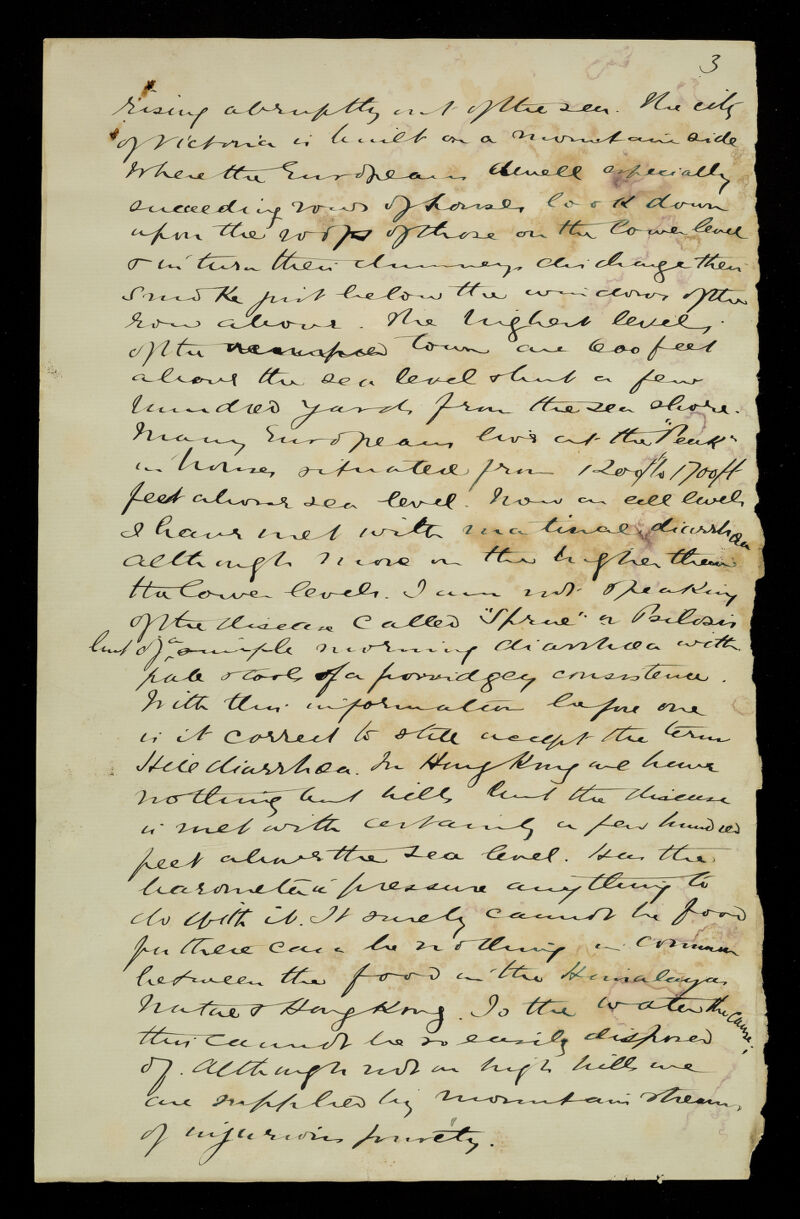 3
rising abruptly out of the sea. The city
of Victoria is built on a mountain side
Where the Europeans dwell especially
succeeding rows of houses look down
upon the roofs of those on the lower level
& in turn their chimneys discharge their
smoke just below the windows of the
row above. The highest levels
of the town are 600 feet
above the sea level & but a few
hundred yards from the sea shore.
Many Europeans live at the "Peak"
in houses situated from 1200 ft to 1700 ft
feet above sea level. Now on all levels
I have met with matinal diarrhœa
although more on the higher than
the lower levels. I am not speaking
of the disease called "Sprue" or Psilosis
but of a simple morning diarrhœa with
pale stools of a porridgey consistence.
With this information before one
is it correct to still accept the term
Hill diarrhœa. In Hong Kong we have
nothing but hills but the disease
is met with certainly a few hundred
feet above the sea level. Has the
barometric pressure anything to
do with it. It surely cannot be food
for there can be nothing in common
between the food in the Himalayas
Natal & Hong Kong. Is the water the cause;
this cannot be so easily disposed
of. Although not on high hills we
are supplied by mountain streams
of injurious purety.